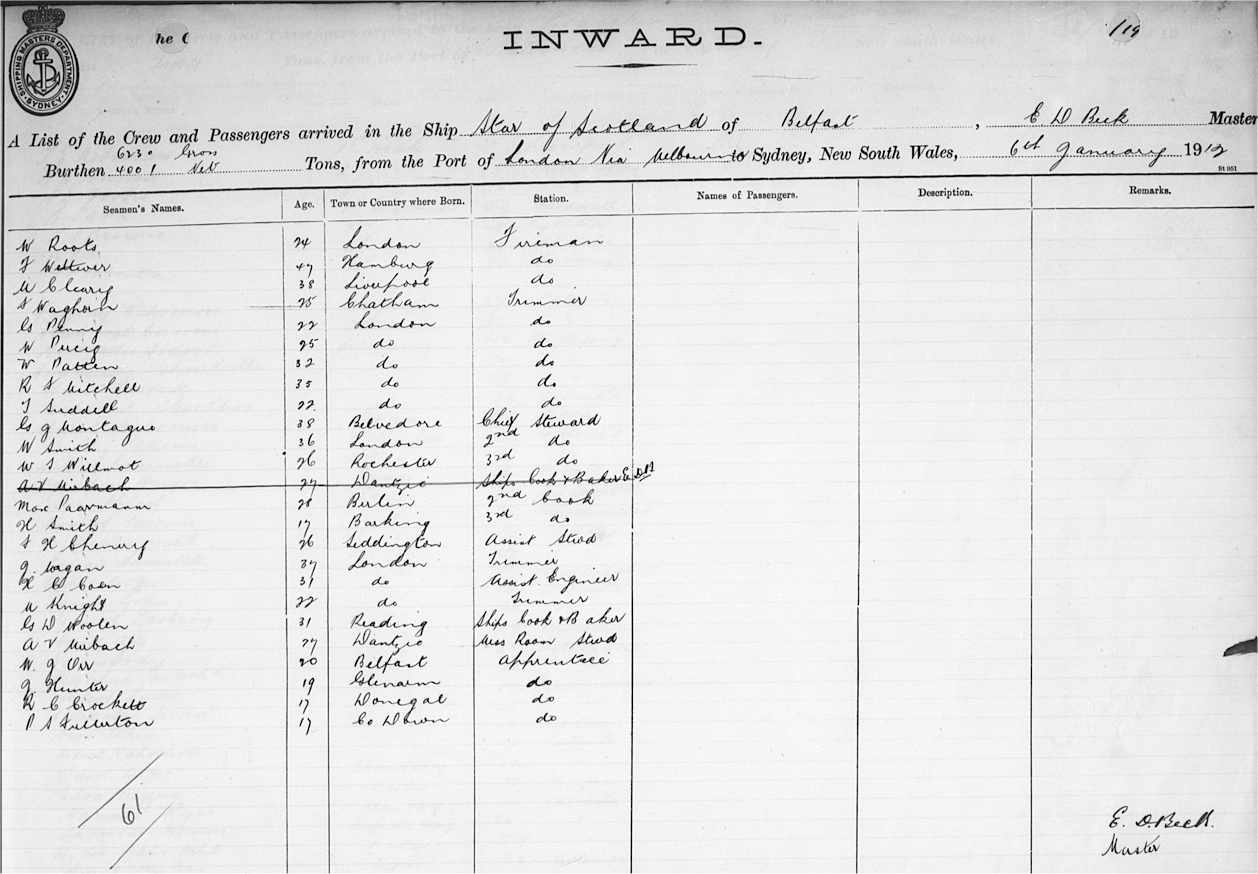 SHIPPING MASTERS DEPARTMENT. SYDNEY
he C
INWARD.
119
A List of the Crew and Passengers arrived in the Ship Star of Scotland of Belfast, E D Beck Master
6230 Gross
Burthen 4001 Net Tons, from the Port of London Via Melbourne to Sydney, New South Wales, 6th January 1912
St 951
Seamen's Names. Age. Town or Country where Born. Station. Names of Passengers. Description. Remarks.
W Roots 24 London Fireman
F 47 Hamburg do
M Cleary 38 Liverpool do
F Waghorn 25 Chatham Trimmer
G Penny 22 London do
W 25 do do
W Patten 32 do do
R F Mitchell 35 do do
T Suddell 22 do do
G J Montague 38 Belvedore Chief Steward
W Smith 36 London 2nd do
W T Willmot 26 Rochester 3rd do
A V Mibach 27 Dantzic Ships Cook & Baker E D B
Max Paarmann 28 Berlin 2nd Cook
H Smith 17 Barking 3rd do
F H 26 Teddington Assist Stwd
J 37 London Trimmer
H C Coen 31 do Assist Engineer
M Knight 22 do Trimmer
G D Woolen 31 Reading Ships Cook & Baker
A V Mibach 27 Dantzic Mess Room Stwd
W. J Orr 20 Belfast Apprentice
J Hunter 19 Glenarm do
R C Crockett 17 Donegal do
P S Fullerton 17 Co Down do
61
E. D. Beck.
Master